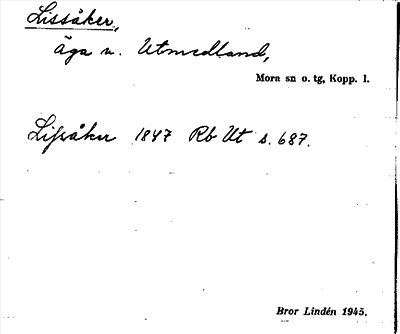 Lissåker,
Äga n. Utmedland,
Mora sn o. tg, Kopp. l.
Lissåker 1847 Rb Ut s. 687.
Bror Lindén 1945.